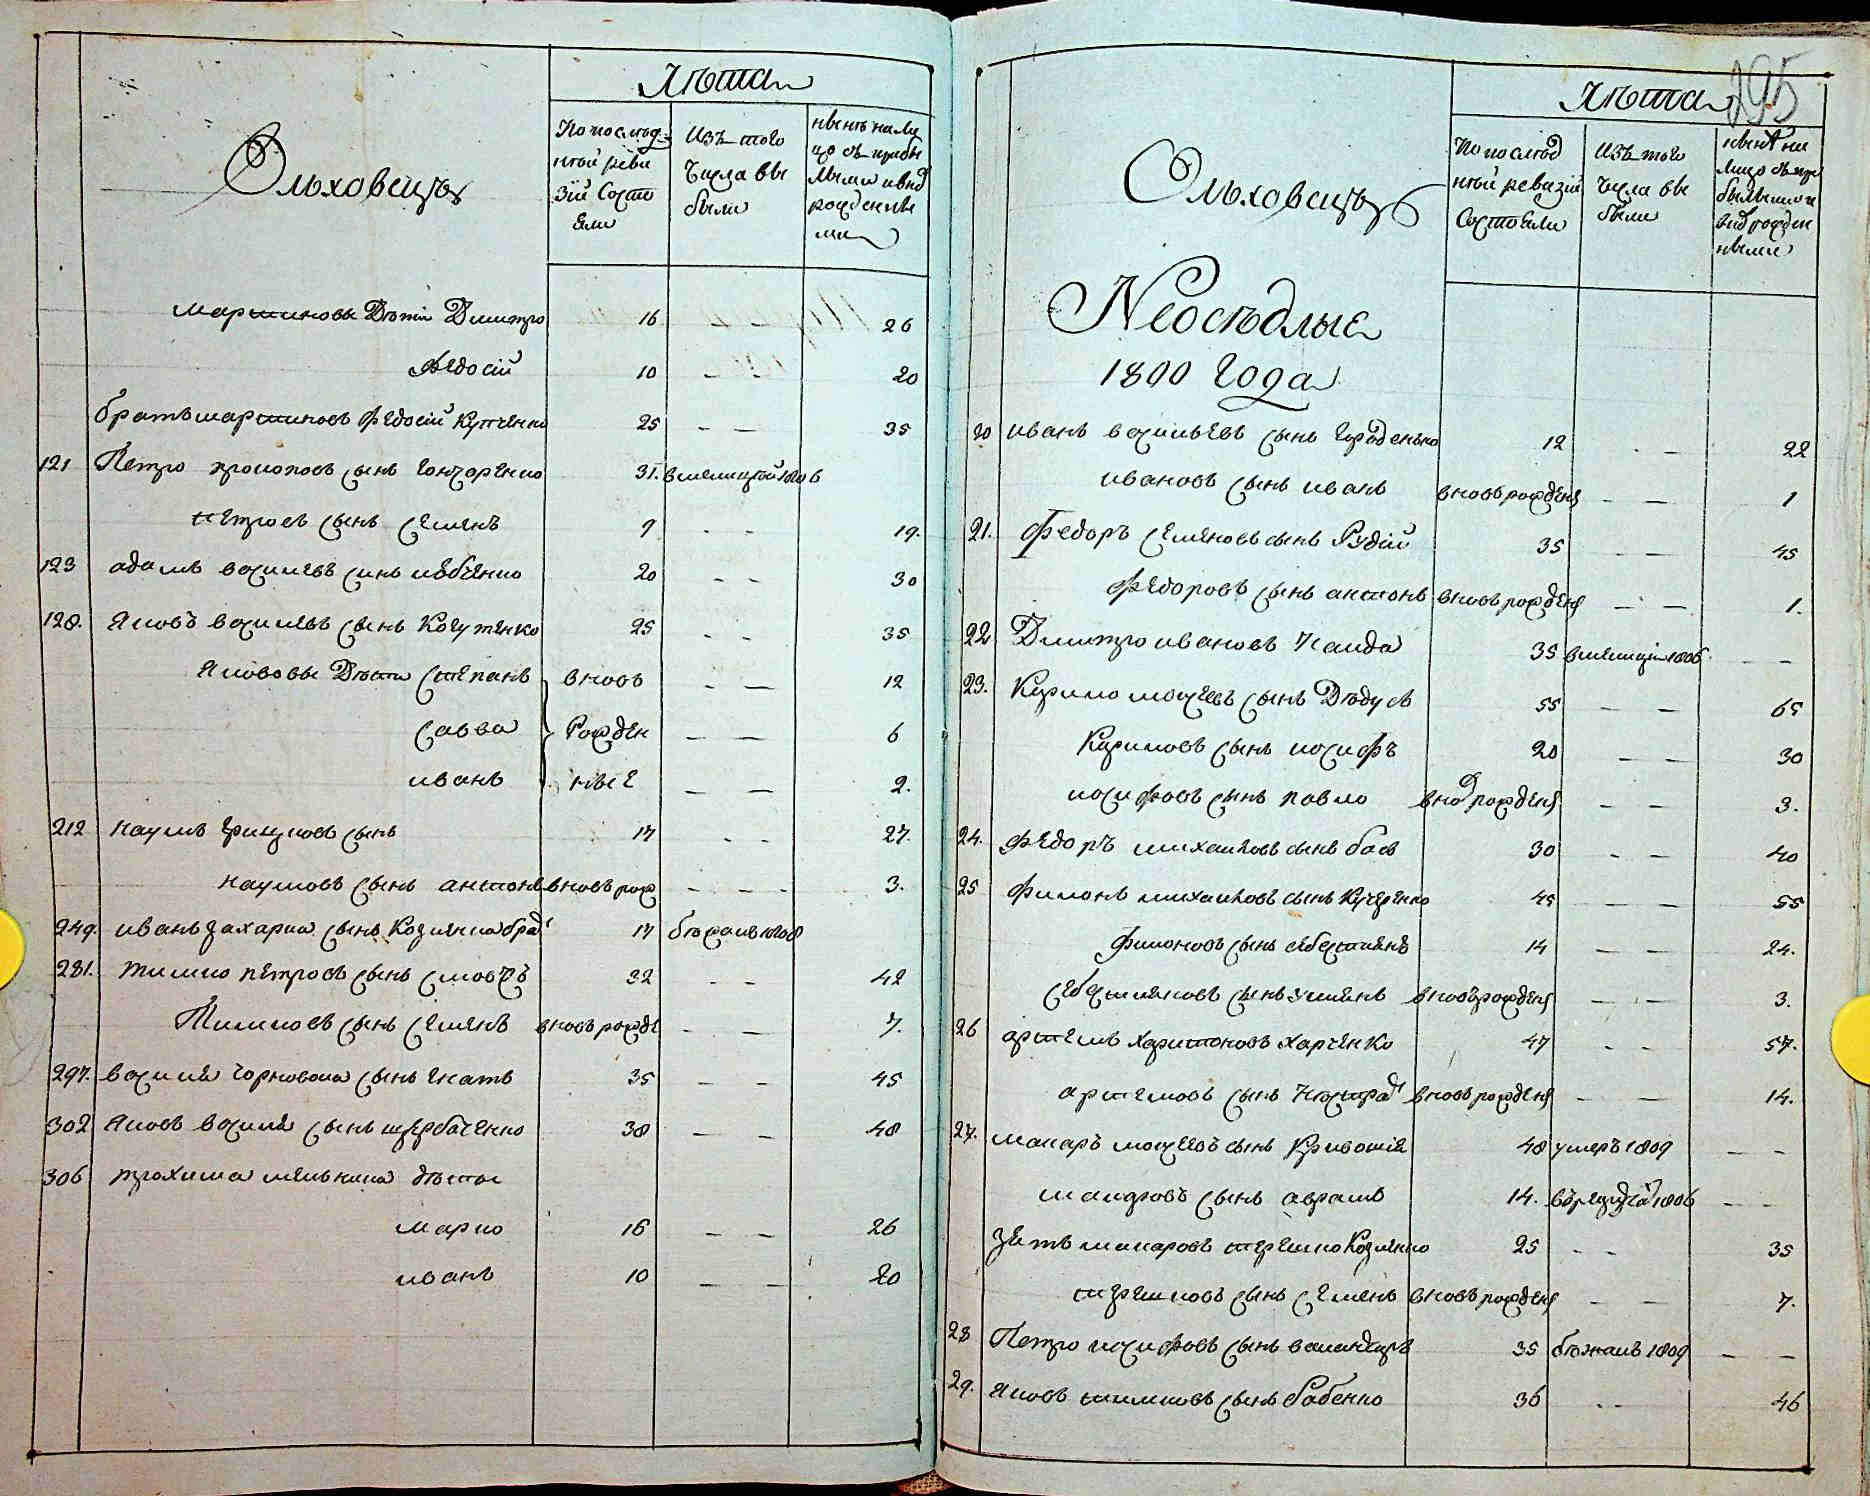 Ольховецъ
Лѣта
По послѣд
нѣй реви
зіи состо
яли
Изъ того
числа вы
были
нынѣ на ли
цо съ прибы
лыми и внов
рожденны
ми
Мартиновы Дѣти Дмитро 16 — — 26
Федосій 10 — — 20
братъ мартиновъ Федосій Купченко 25 — — 35
121 Петро прокоповъ сынъ гончаренко 31. 1806
петровъ сынъ семенъ 9 — — 19.
123 адамъ васильевъ синъ 20 — — 30
128. Яковъ васильевъ сынъ Когутенко 25 — — 35
Яковովы Дѣти степанъ вновь — — 12
савва Рожден — — 6
иванъ ные — — 2.
212 наумъ грицковъ сынъ 17 — — 27.
наумовъ сынъ антонъ вновь рож — — 3.
249. иванъ захарка сынъ Козленка брат 17 бѣжалъ 1808
281. тимко петровъ сынъ 32 — — 42
Тимковъ сынъ семенъ вновь рожде — — 7.
297. василя чорновола сынъ игнатъ 35 — — 45
302 Яковъ василя сынъ щербаченко 38 — — 48
306 трохима мельника дѣти
марко 16 — — 26
иванъ 10 — — 20
295
Ольховецъ
Лѣта
По послѣд
нѣй ревизіи
состояли
Изъ того
числа вы
были
нынѣ на
лицо съ при
былыми и
внов рожден
ными
Неосѣдлые
1800 Года
20 иванъ васильевъ сынъ городенько 12 — — 22
ивановъ сынъ иванъ вновь рожденъ — — 1
21. Федоръ семеновъ сынъ Рудій 35 — — 45
Федоровъ сынъ антонъ вновь рожденъ — — 1.
22 Дмитро ивановъ Найда 35 1806 — —
23. Кирило мосѣевъ сынъ Дѣдусъ 55 — — 65
Кириловъ сынъ иосифъ 20 — — 30
иосифовъ сынъ павло внов рожденъ — — 3.
24. Федоръ михайловъ сынъ 30 — — 40
25 филонъ михайловъ сынъ Кучеренко 45 — — 55
филоновъ сынъ себестиянъ 14 — — 24.
себестияновъ сынъ вновь рожденъ — — 3.
26 артемъ харитоновъ харченко 47 — — 57.
артемовъ сынъ вновь рожденъ — — 14.
27. макаръ мосѣевъ сынъ Кривошія 48 умеръ 1809 — —
макаровъ сынъ аврамъ 14. 1806 — —
зять макаровъ терешко Козленко 25 — — 35
терешковъ сынъ семенъ вновь рожденъ — — 7.
28 Петро иосифовъ сынъ 35 бѣжалъ 1809 — —
29. Яковъ тимковъ сынъ бабенко 36 — — 46